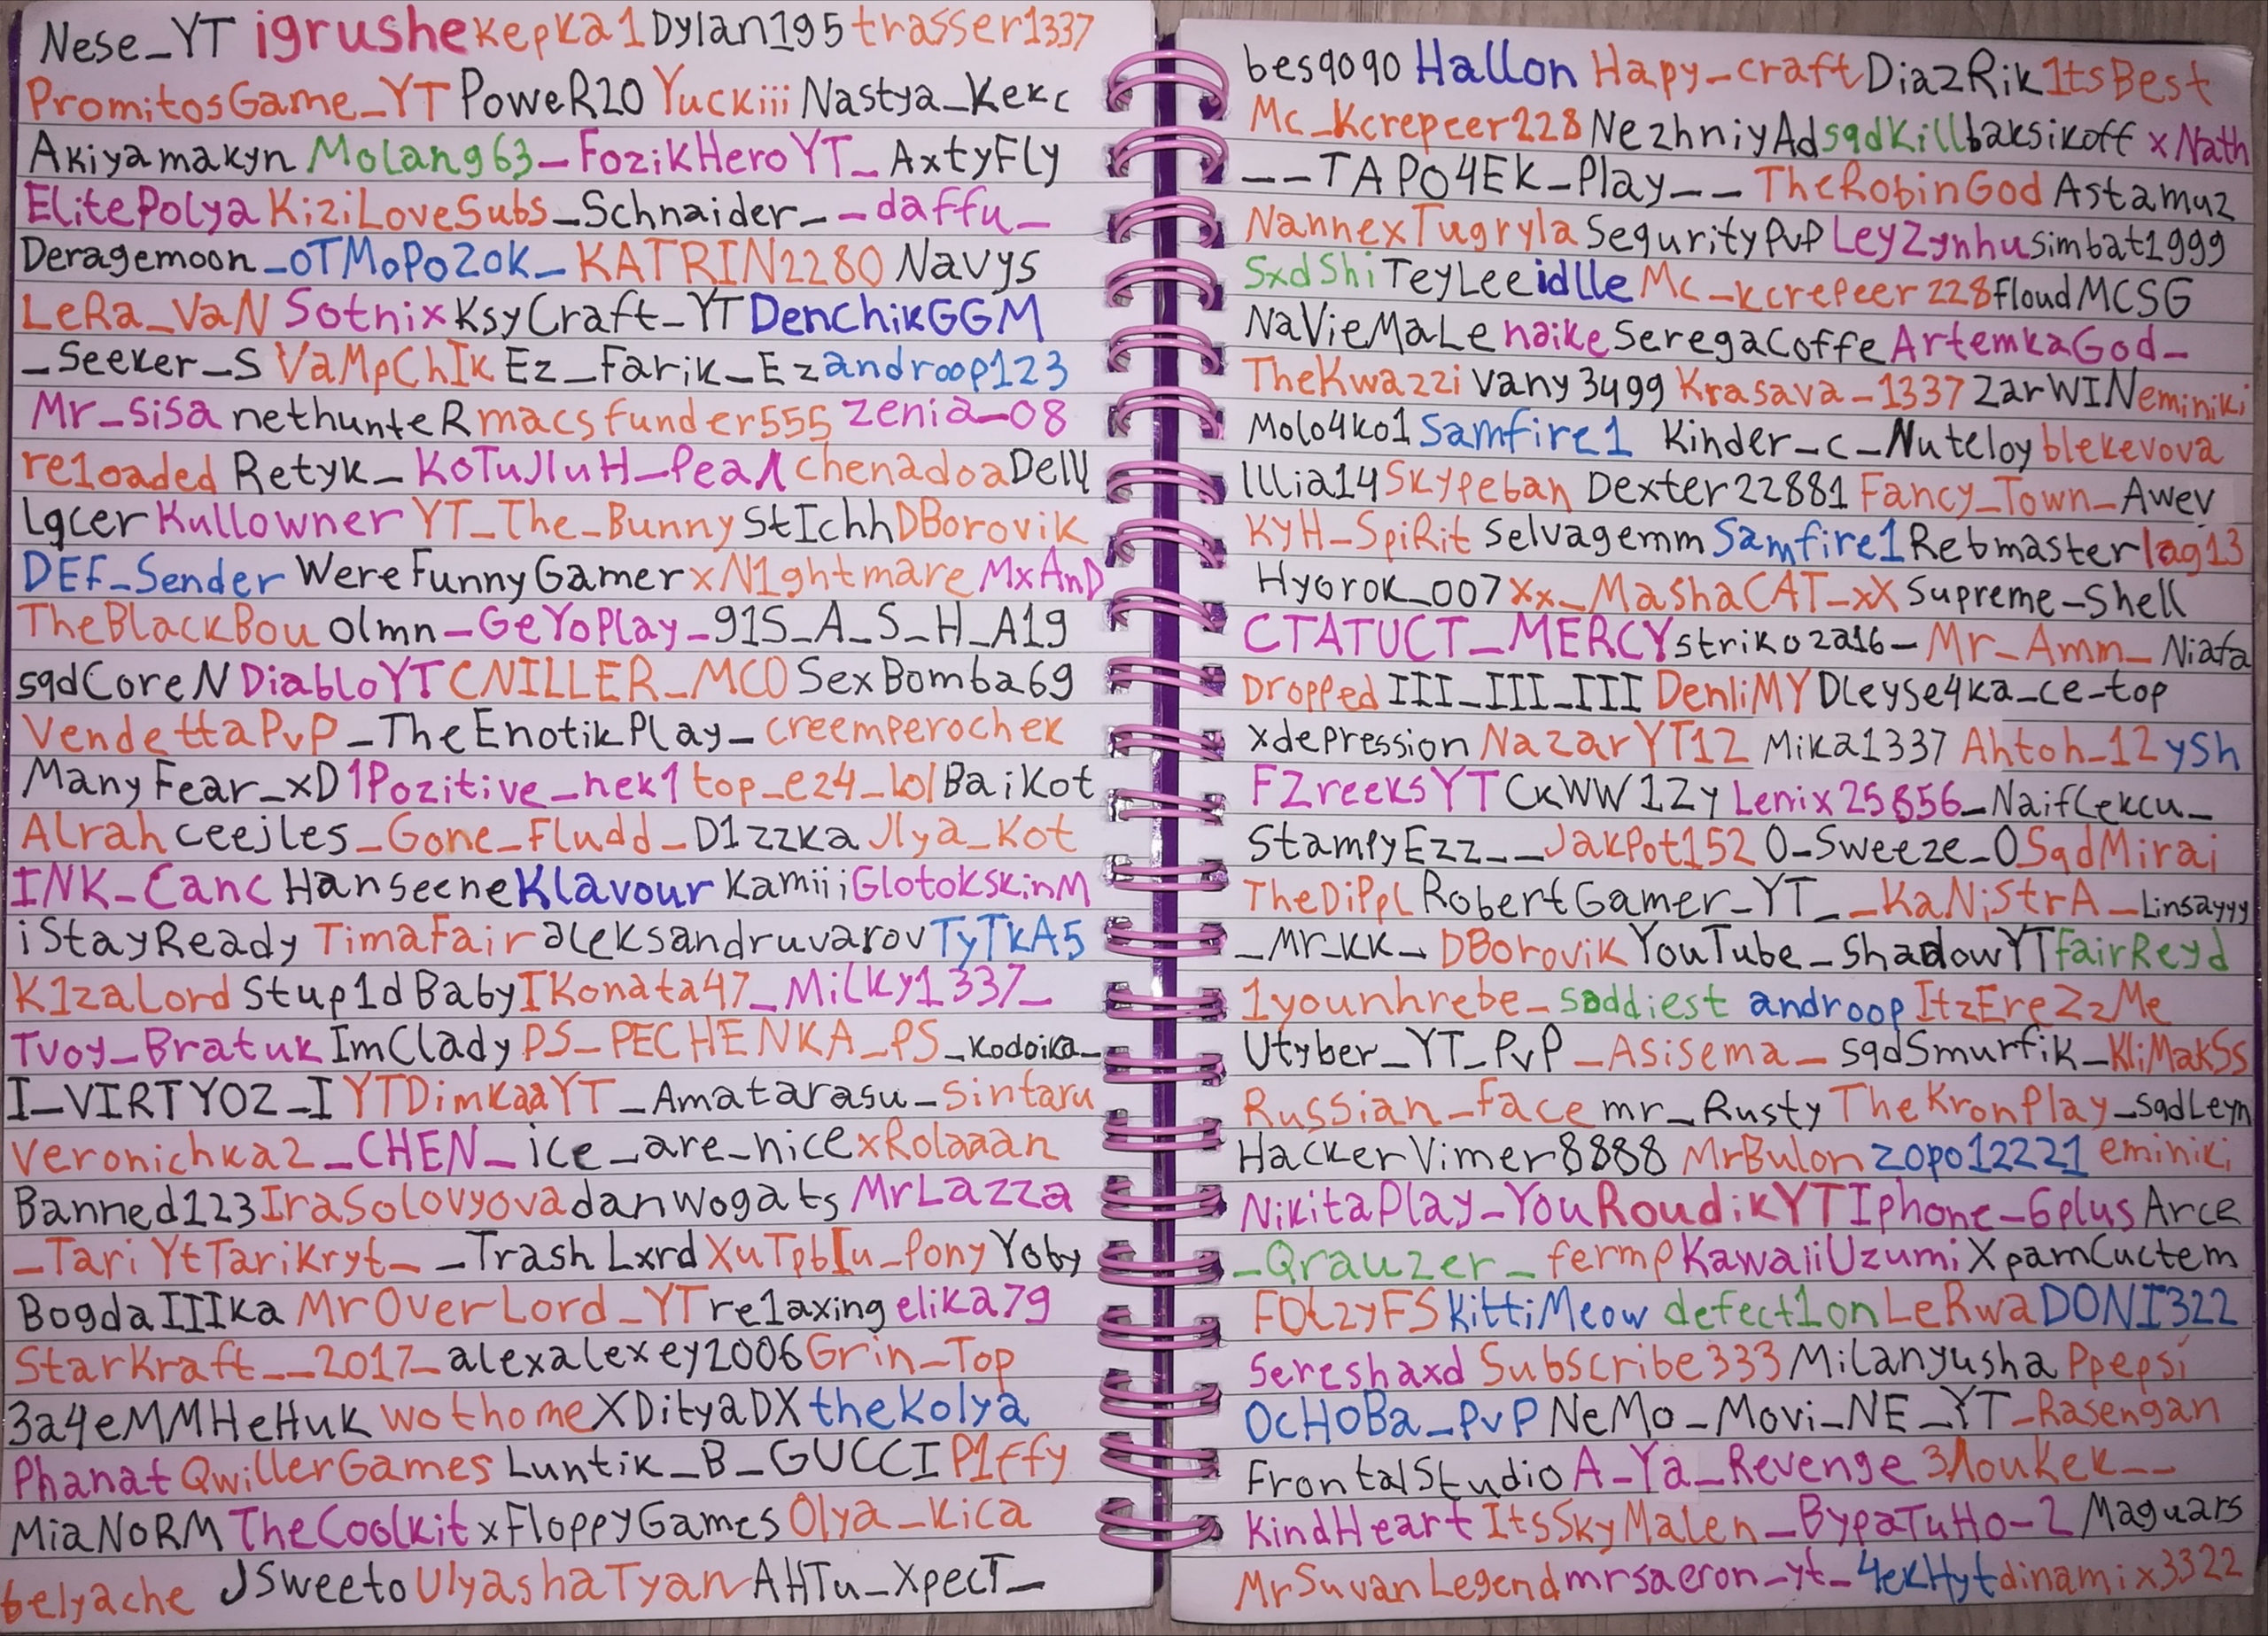 Nese_YT igrushe kepka1 Dylan195 trasser1337
PromitosGame_YT PoweR20 Yuckiii Nastya_Kekc
Akiyamakyn Molang63_FozikHeroYT_ AxtyFly
ElitePolya KiziLoveSubs _Schnaider_ _daffu_
Deragemoon _oTMoPoZoK_ KATRIN2280 Navys
LeRa_VaN Sotnix KsyCraft_YT DenchikGGM
_Seeker_S VaMpChIk Ez_Farik_Ez androop123
Mr_sisa nethunteR macsfunder555 zenia_08
re1oaded Retyk_ KoTuJluH_Pea1 chenadoa Delly
Lgcer Kullowner YT_The_Bunny StIchh DBorovik
DEF_Sender WereFunnyGamer xN1ghtmare MxAnD
TheBlackBou olmn _GeYoPlay_ 91S_A_S_H_A19
sqdCoreN DiabloYT CNILLER_MCO SexBomba69
VendettaPvP _TheEnotikPlay_ creemperochek
ManyFear_xD 1Pozitive_nek1 top_ez4_lol BaiKot
Alrah ceejles _Gone_Fludd_ D1zzka Jlya_Kot
INK_Canc Hanseene Klavour Kamiii GlotokSkinM
iStayReady TimaFair aleksandruvarov TyTkA5
K1zaLord Stup1dBaby IKonata47 _Milky1337_
Tvoy_Bratuk ImClady PS_PECHENKA_PS _Kodoika_
I_VIRTYOZ_I YTDimkaaYT _Amatarasu_ Sintaru
Veronichka2 _CHEN_ ice_are_nice xRolaaan
Banned123 IraSolovyova danwogats MrLazza
_Tari YtTariKryt_ _Trash Lxrd XuTpbIu_Pony Yoby
BogdaIIIka MrOverLord_YT re1axing elika79
StarKraft__2017_ alexalexey2006 Grin_Top
3a4eMMHeHuk wothome XDityaDX thekolya
Phanat QwillerGames Luntik_B_GUCCI P1ffy
MiaNoRM TheCoolkit xFloppyGames Olya_Kica
belyache JSweeto UlyashaTyan AHTu_XpecT_
bes9090 Hallon Hapy_craft DiazRik 1tsBest
Mc_Kcrepeer228 NezhniyAd sqdKill baksikoff xNath
__TAPO4EK_Play__ TheRobinGod Astamuz
Nannex Tugryla SequrityPvP LeyZynhu simbat1999
SxdShi TeyLee idlle Mc_Kcrepeer228 floudMCSG
NaVieMaLe naike SeregaCoffe ArtemkaGod_
TheKwazzi vany3499 Krasava_1337 ZarWIN eminiki
Molo4ko1 Samfire1 Kinder_c_Nuteloy blekevova
lllia14 Skypeban Dexter22881 Fancy_Town_ Awev
KyH_SpiRit Selvagemm Samfire1 Rebmaster lag13
Hyorok_007 Xx_MashaCAT_xX Supreme_Shell
CTATUCT_MERCY striko2a16_ Mr_Amm_ Niafa
Dropped III_III_III DenliMY Dleyse4ka_ce_top
xdepression NazarYT12 Mika1337 Ahtoh_12 ySh
FZreeksYT CkWW1Zy Lenix25856 _NaifCekcu_
StampyEzz__ _JakPot152 O_Sweeze_O SqdMirai
TheDiPpl RobertGamer_YT_ _KaNiStrA_ Linsayyy
_Mr_KK_ DBorovik YouTube_ShadowYT FairReyd
1younhrebe_ saddiest androop ItzEreZzMe
Utyber_YT_PvP _Asisema_ sqdSmurfik_ KliMakSs
Russian_face mr_Rusty TheKronPlay _sqdLeyn
HackerVimer8888 MrBulon zopo12221 eminiki
NikitaPlay_You RoudikYT Iphone_6plus Arce
_Qrauzer_ fermp KawaiiUzumi XpamCuctem
FOtzyFS KittiMeow defect1on LeRwa DONI322
Sereshaxd Subscribe333 Milanyusha Ppepsi
OcHOBa_PvP NeMo_Movi_NE_YT _Rasengan
FrontalStudio A_Ya_Revenge 3Лоukek__
KindHeart ItsSkyMalen _BypaTuHo_2 Maguars
MrSuvanLegend mrsaeron_yt_ 4ekHyt dinamix3322